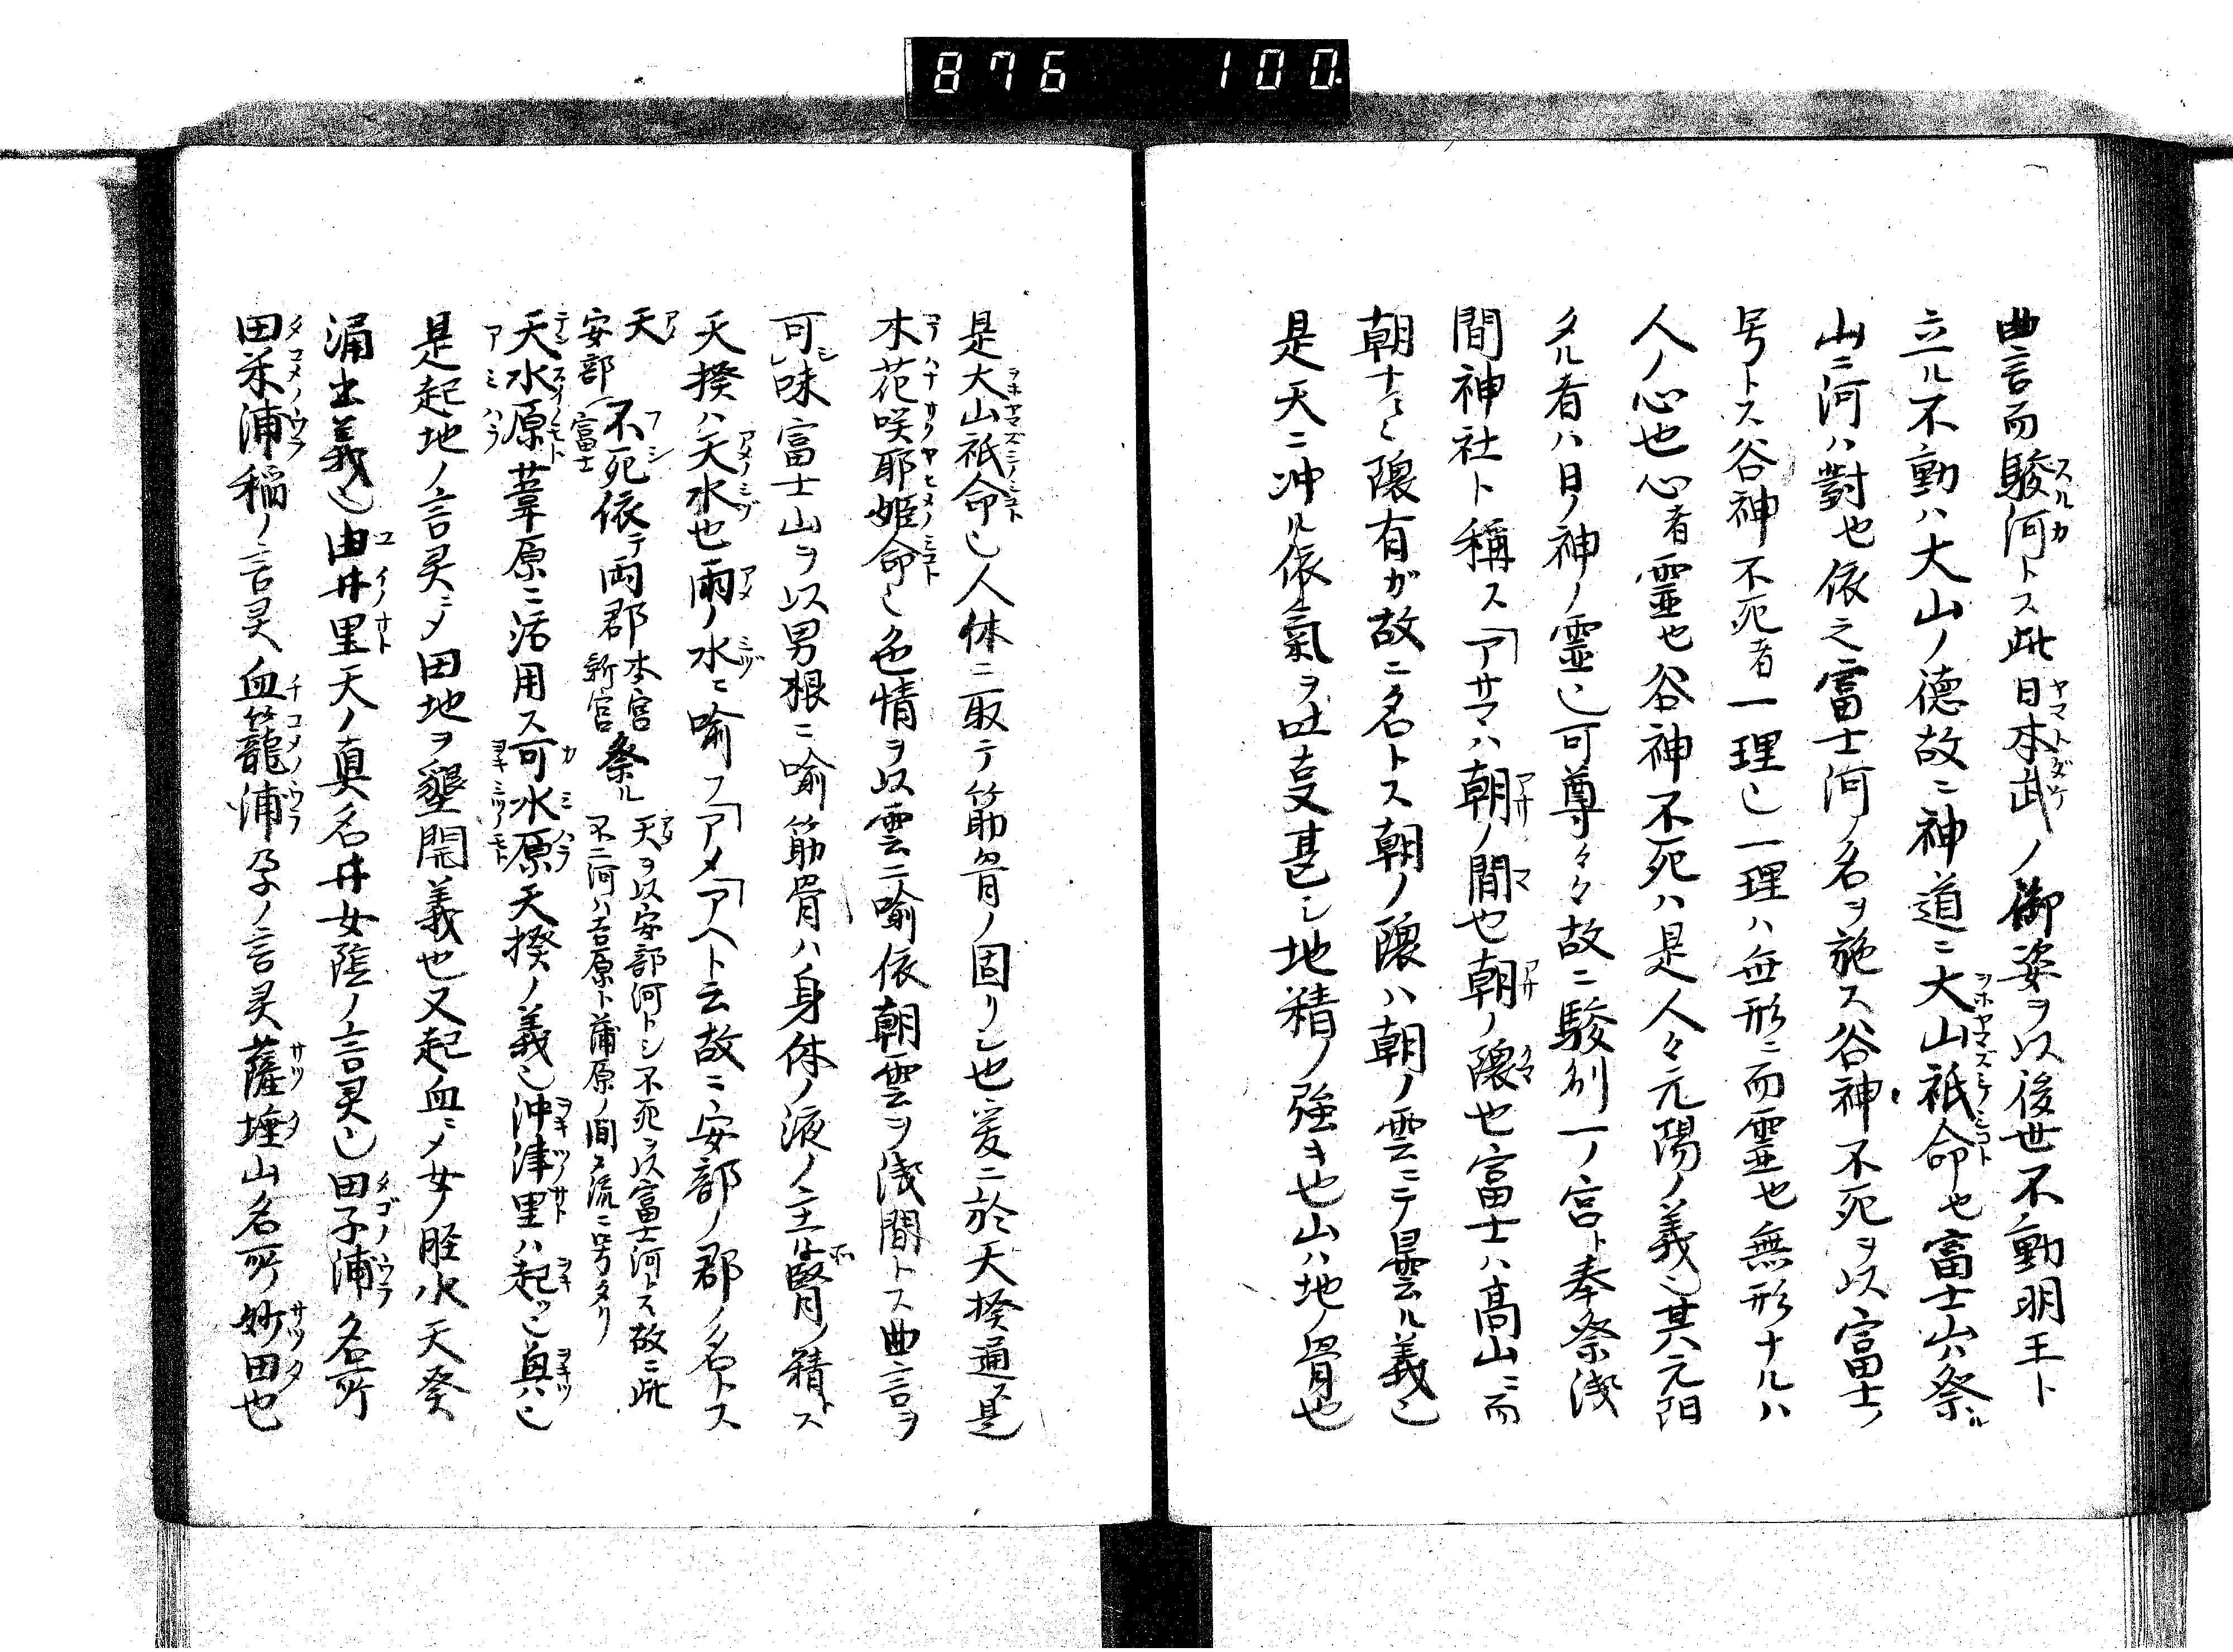 876 100
曲言而駿河トス此日本武ノ御姿ヲ以後世不動明王ト
立ル不動ハ大山ノ德故ニ神道ニ大山祇命也富士山ハ祭ル
山ニ河ハ對也依之富士河ノ名ヲ施ス谷神不死ヲ以富士ノ
号トス谷神不死者一理也一理ハ無形ニ而靈也無形ナルハ
人ノ心也心者靈也谷神不死ハ是人々元陽ノ義也其ハ元陽
タル者ハ日ノ神ノ靈也可尊々々故ニ駿州一ノ宮ト奉祭淺
間神社ト稱スアサマハ朝ノ間也朝ノ隈也富士ハ高山ニ而
朝ナ々隈有ガ故ニ名トス朝ノ隈ハ朝ノ雲ニテ曇ル義也
是天ニ冲ル依氣ヲ吐㕝甚シ地精ノ強キ也山ハ地ノ骨也
是大山祇命也人体ニ取テ筋骨ノ固リ也爰ニ於天揆通ス是
木花咲耶姫命也色情ヲ以雲ニ喩依朝雲ヲ淺間トス曲言ヲ
可味富士山ヲ以男根ニ喩筋骨ハ身体ノ液ノ主ハ腎ノ精トス
天揆ハ天水也雨ノ水ニ喩フアメアヘト云故ニ安部ノ郡ノ名トス
天 不死依テ両郡本宮祭ル 天ヲ以安部河トシ不死ヲ以富士河トス故ニ此
安部 富士 新宮 不二河ハ吉原ト蒲原ノ間タ流ニ号タリ
天水原葦原ニ活用ス可水原天揆ノ義也沖津里ハ起ツ也奥ハ也
是起地ノ言灵ニメ田地ヲ墾開義也又起血ニメ女ノ胵水天癸
涌出義也由井里天ノ真名井女陰ノ言灵也田子浦名所
田米浦稲ノ言灵血籠浦孕ノ言灵薩埵山名所妙田也